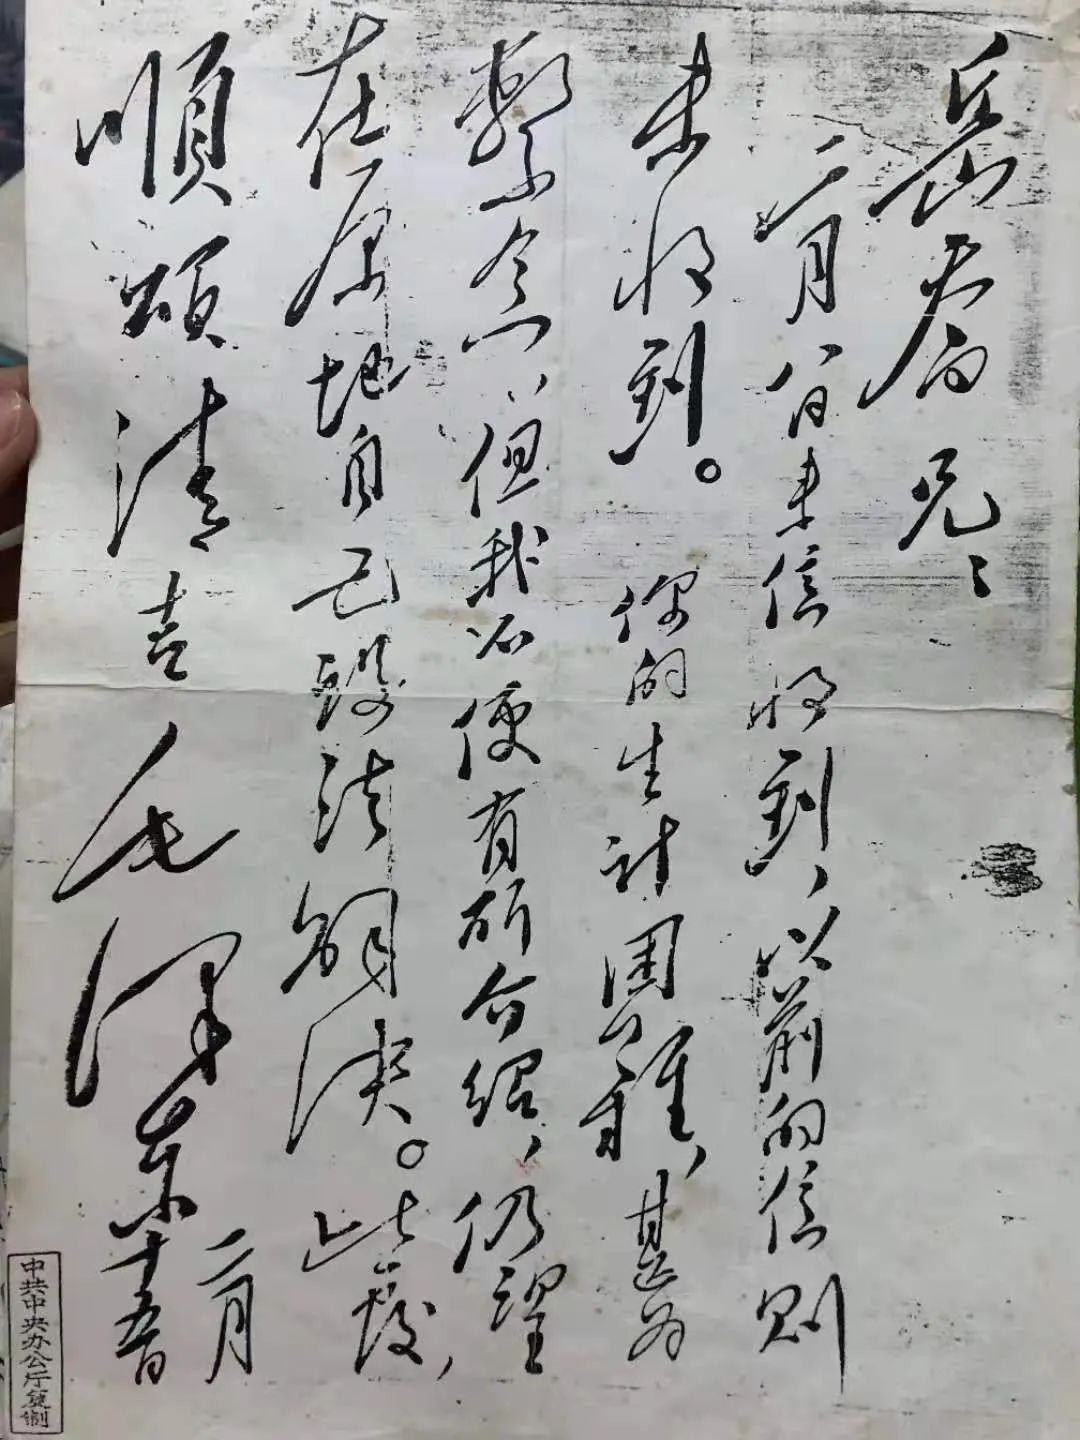 岳乔兄：
二月八日来信收到，以前的信则
未收到。你的生计困难，甚为
系念，但我不便有所介绍，仍望
在原地自己设法解决。此复，
順頌清吉
毛泽东
二月
十五日
中共中央办公厅复制